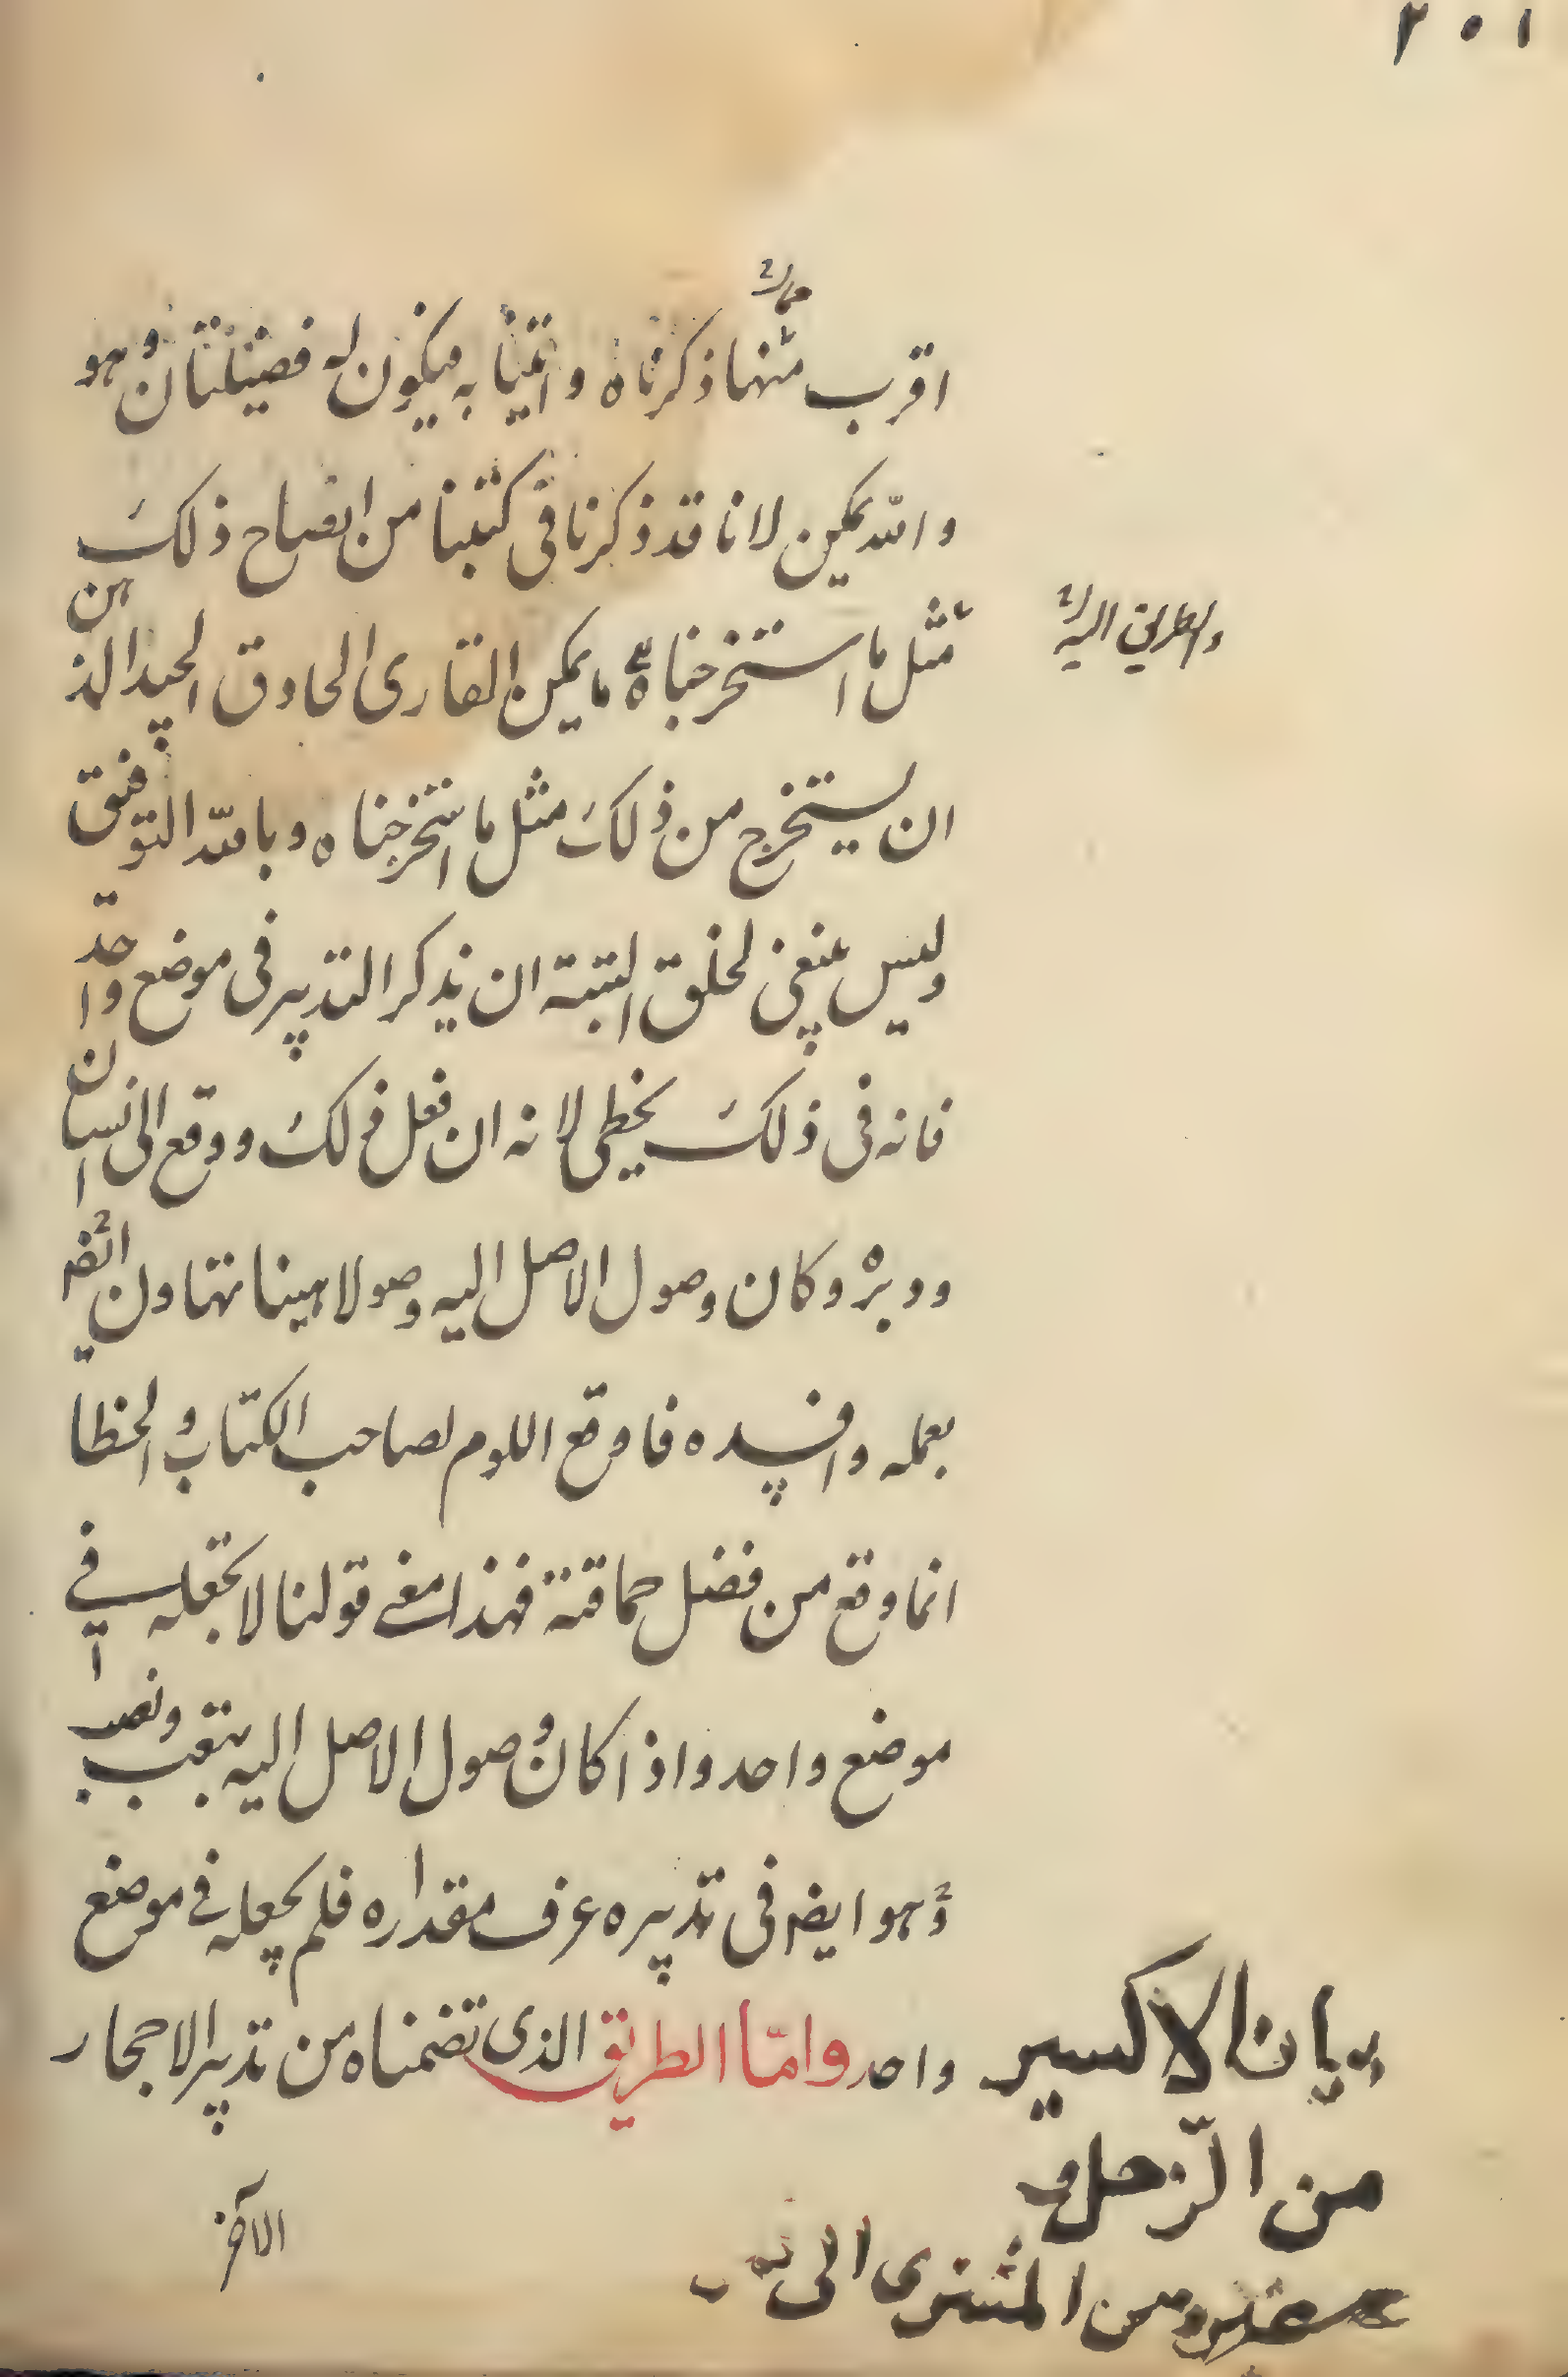 ٢٠١
مما
اقرب منها ذكرناه واتينا به فيكون له فضيلتان وهو
والله يمكن لانا قد ذكرنا في كتبنا من ايضاح ذلك
والطريق اليه
مثل ما استخرجناه ما يمكن القارى الحاذق الجيد الذهن
ان يستخرج من ذلك مثل ما استخرجناه وبالله التوفيق
وليس ينبغى لخلق البتة ان يذكر التدبير فى موضع واحد
فانه فى ذلك يخطى لانه ان فعل ذلك ووقع الى انسان
ودبره وكان وصول الاصل اليه وصولا هينا تهاون ايضه
بعمله وافسده فاوقع اللوم لصاحب الكتاب والخطا
انما وقع من فضل حماقته فهذا معنى قولنا لا تجعله في
موضع واحد واذا كان وصول الاصل اليه بتعب ونصب
وهو ايضه فى تدبيره عرف مقداره فلم يجعله في موضع
واحد واما الطريق الذى تضمناه من تدبير الاحجار
بيان الاكسير
من الزحل و
ومن المشترى الى
الآخر